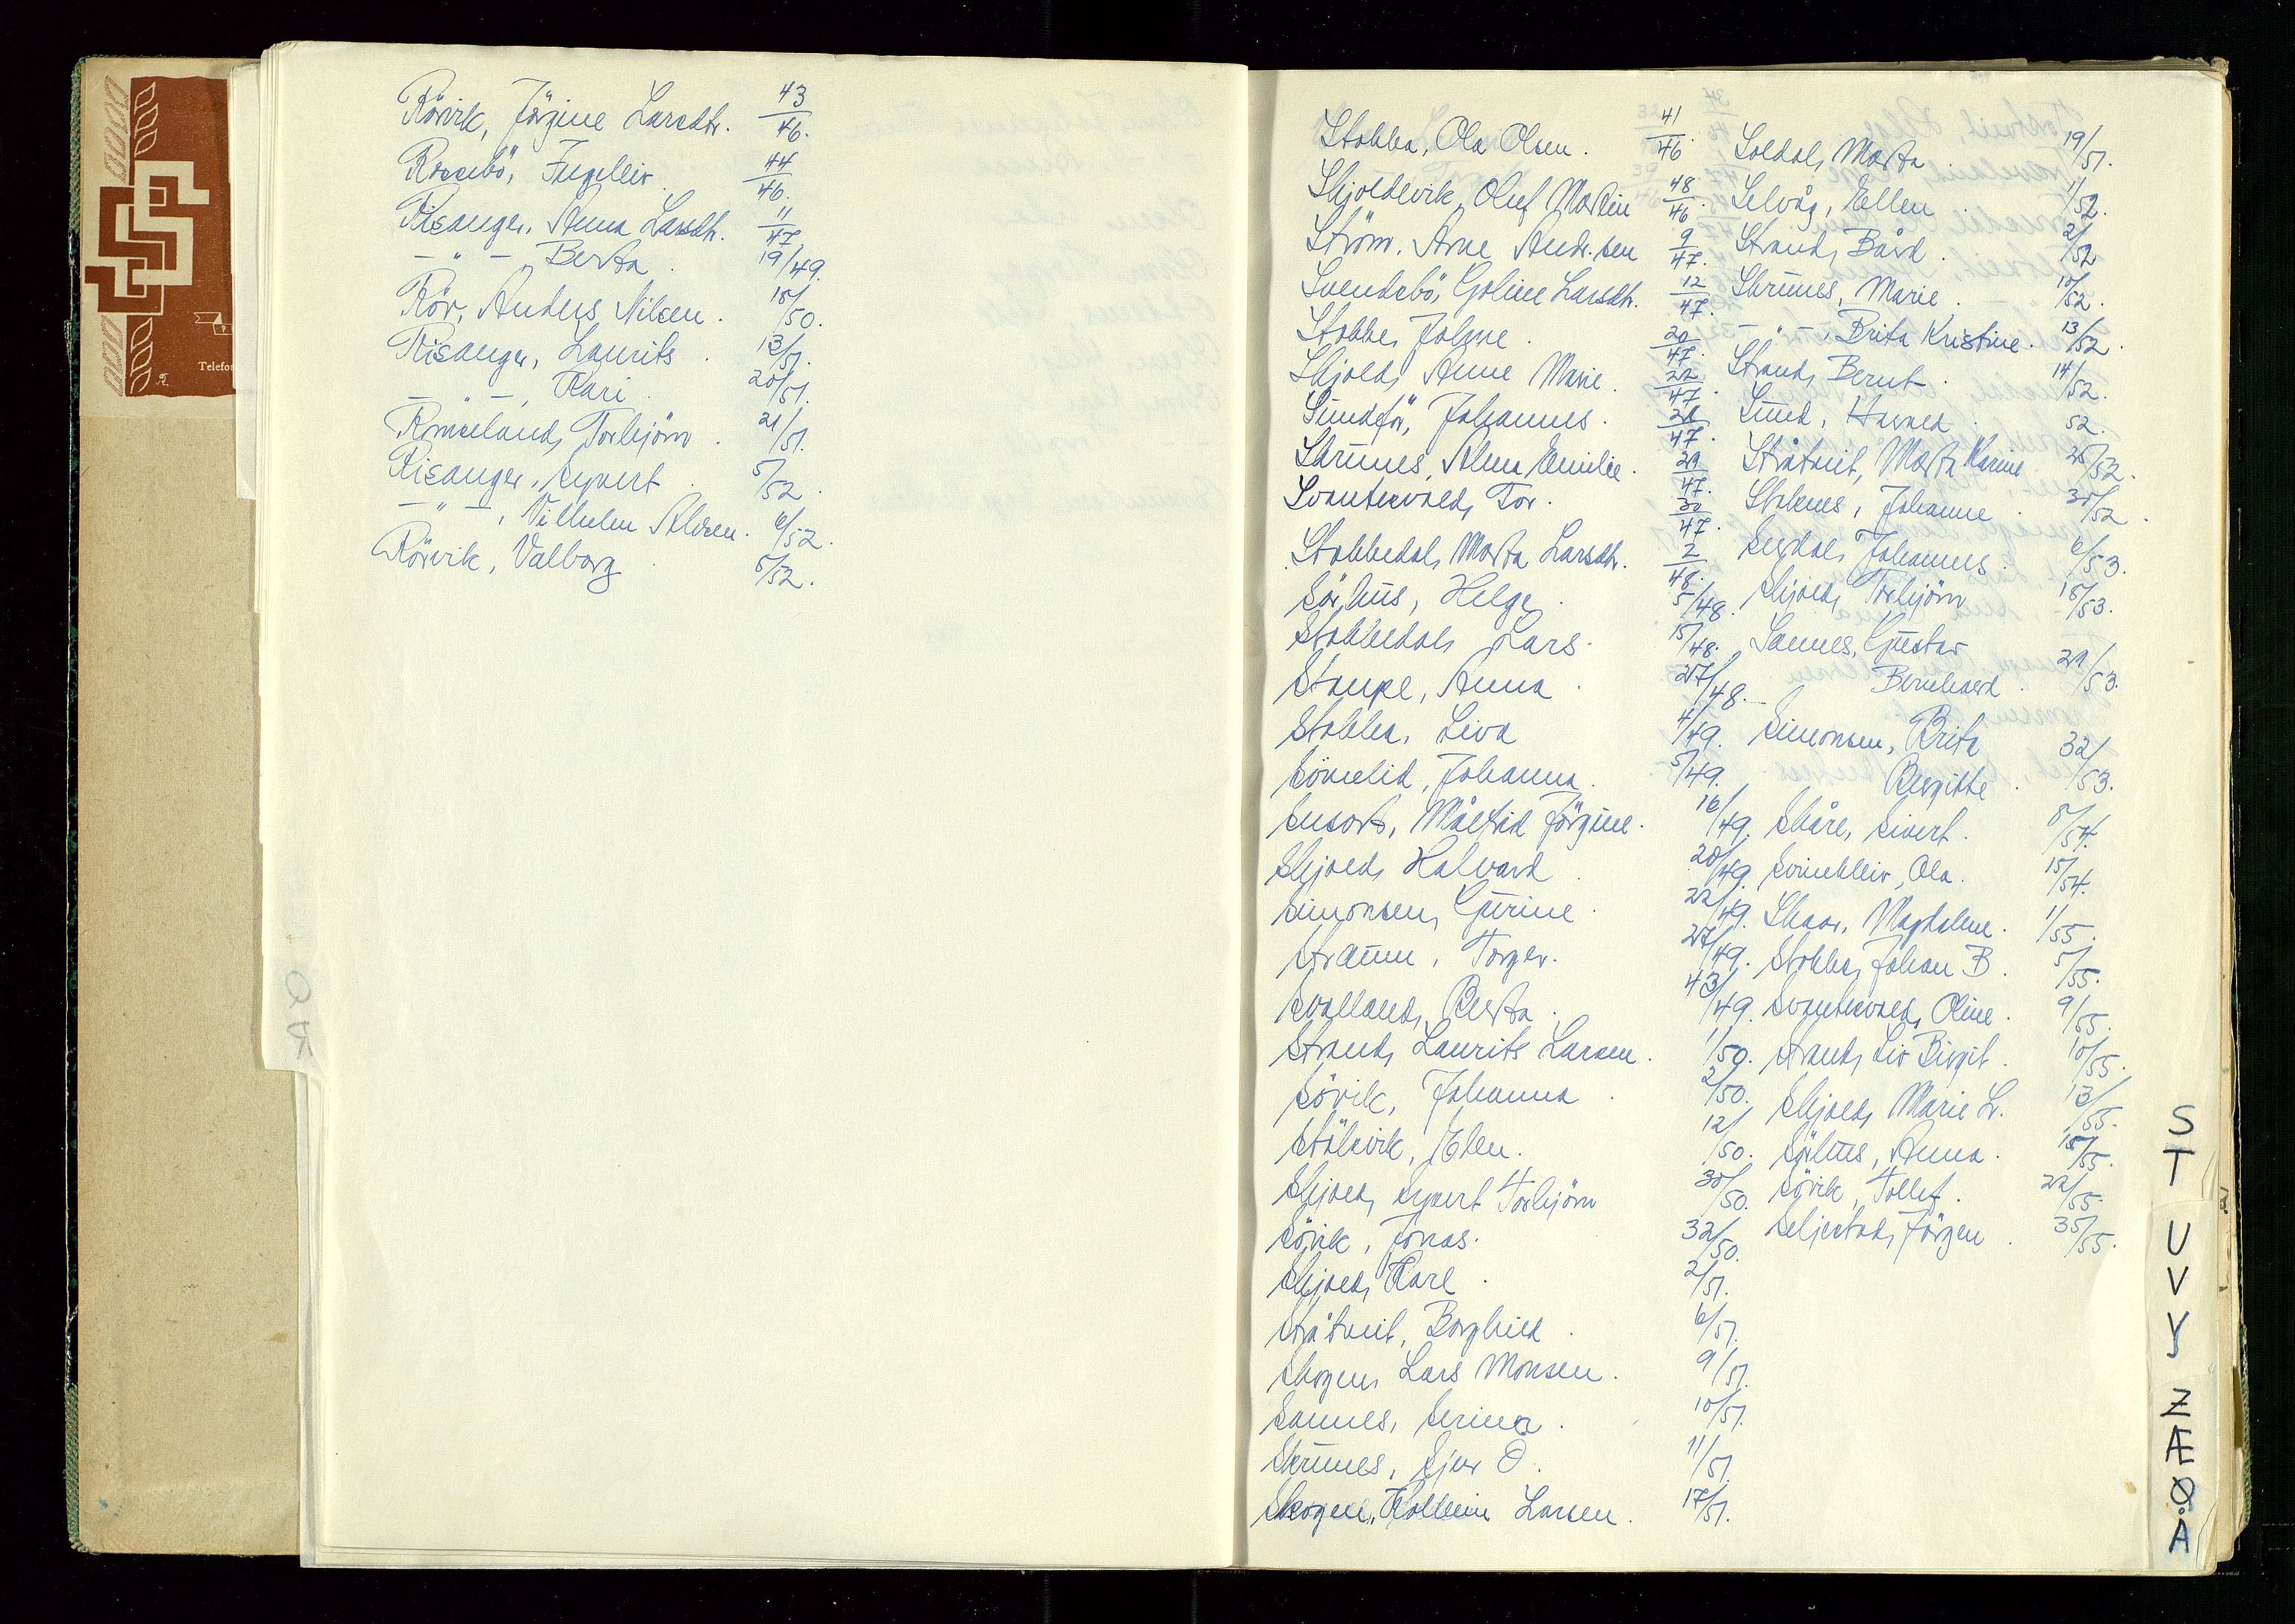 Rörvik, Jörgine Larsdtr. 43/46.
Rossebö, Ingeleiv 44/46.
Risanger, Anna Larsdtr. 11/47
— " — , Berta . 19/49.
Rör, Anders Nilsen . 15/50.
Risanger, Laurits . 13/51.
— " — , Kari . 20/51.
Rimseland, Torbjörn . 21/51.
Risanger, Syvert . 5/52 .
— " — , Vilhelm . 6/52.
Rörvik, Valborg . 8/52.
Telefo
Stokka, Ola Olsen . 41/46
Skjoldevik, Oluf Martin 48/46.
Ström, Arne Andr.sen 9/47.
Svendsbö, Goline Larsdtr. 12/47.
Stokke, 20/47.
Skjold, Anne Marie . 22/47.
Sundför, Johannes . 28/47.
Skrunes, Alma Emilie . 29/47.
Svantesvold, Tor . 30/47.
Stokkedal, Marta Larsdtr. 2/48.
Sörhus, Helge . 5/48.
Stokkedal, Lars . 15/48.
Staupe, Anna . 27/48.
Stokka, Siva 4/49.
Sömelid, Johanna . 5/49.
Susort, Målfrid Jörgine . 16/49.
Skjold, Halvard . 20/49.
Simonsen, Gurine . 22/49.
Straum, Torger . 27/49.
Svalland, Berta . 43/49.
Strand, Laurits Larsen . 1/50.
Sövik, Johanna . 2/50.
Stölsvik, Elen . 12/50.
Skjold, Syvert Torbjörn 30/50.
Sövik, Jonas . 32/50.
Skjold, Karl . 2/51.
Stråtveit, Borghild . 6/51.
Skogen, Lars Monsen . 9/51.
Sannes, Serina . 10/51.
Skrunes, Sjur O . 11/51.
Skogen, Larsen . 17/51.
Soldal, Marta . 19/51.
Selvåg, Ellen . 1/52.
Strand, Bård . 2/52
Skrunes, Marie . 10/52.
— " — , Brita Kristine . 13/52.
Strand, Bernt . 14/52.
Sund, Havard . 52.
Stråtveit, Marta Karine 25/52.
Stoknes, Johanne . 30/52.
Johannes . 6/53.
Skjold, Torbjörn 18/53.
Sannes, Gustav
Bernhard . 29/53.
Simonsen, Brita
Bergitte . 32/53.
Skåre, Sivert . 8/54.
Svinekleiv, Ola . 15/54.
Skaar, Magdalene . 1/55.
Stokka, Johan B . 5/55.
Svantesvold, Oline . 9/55.
Strand, Liv Birgit . 10/55.
Skjold, Marie L. 13/55.
Sörhus, Anna . 15/55.
Sövik, Tollef . 22/55.
Seljestad, Jörgen . 35/55.
S
T
U
V
Y
Z
Æ
Ø
Å